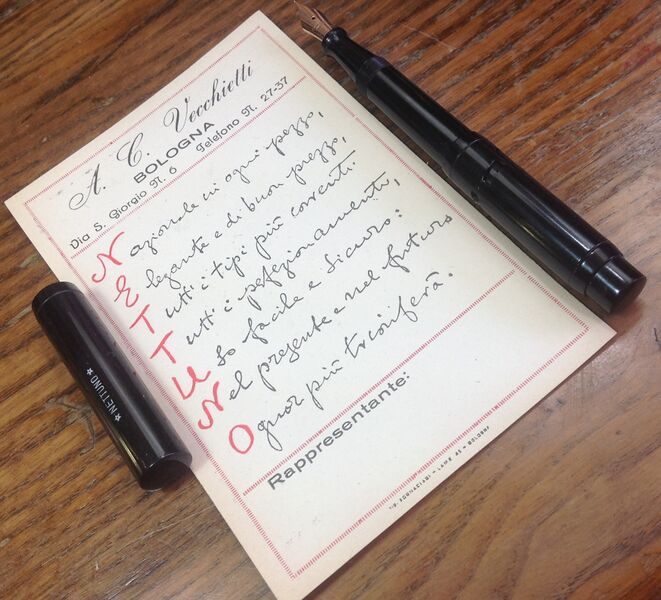 A. C. Vecchietti
BOLOGNA
Via S. Giorgio N. 6 Telefono N. 27-37
Nazionale in ogni pezzo,
Elegante e di buon prezzo,
Tutt' i tipi più correnti.
Tutt' i pefezionamenti,
Uso facile e sicuro:
Nel presente e nel futuro
Ognor più trionferà.
Rappresentante:
TIP. FORNACIARI - LAME 45 - BOLOGNA
★ NETTUNO ★